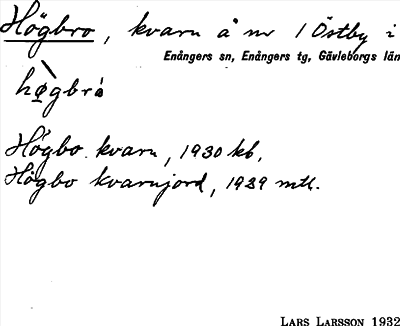 Högbro, kvarn å nr 1 Östby i
Enångers sn, Enångers tg, Gävleborgs län
hø̀gbrò
Högbo kvarn, 1930 kb.
Högbo kvarnjord, 1939 mtl.
LARS LARSSON 1932